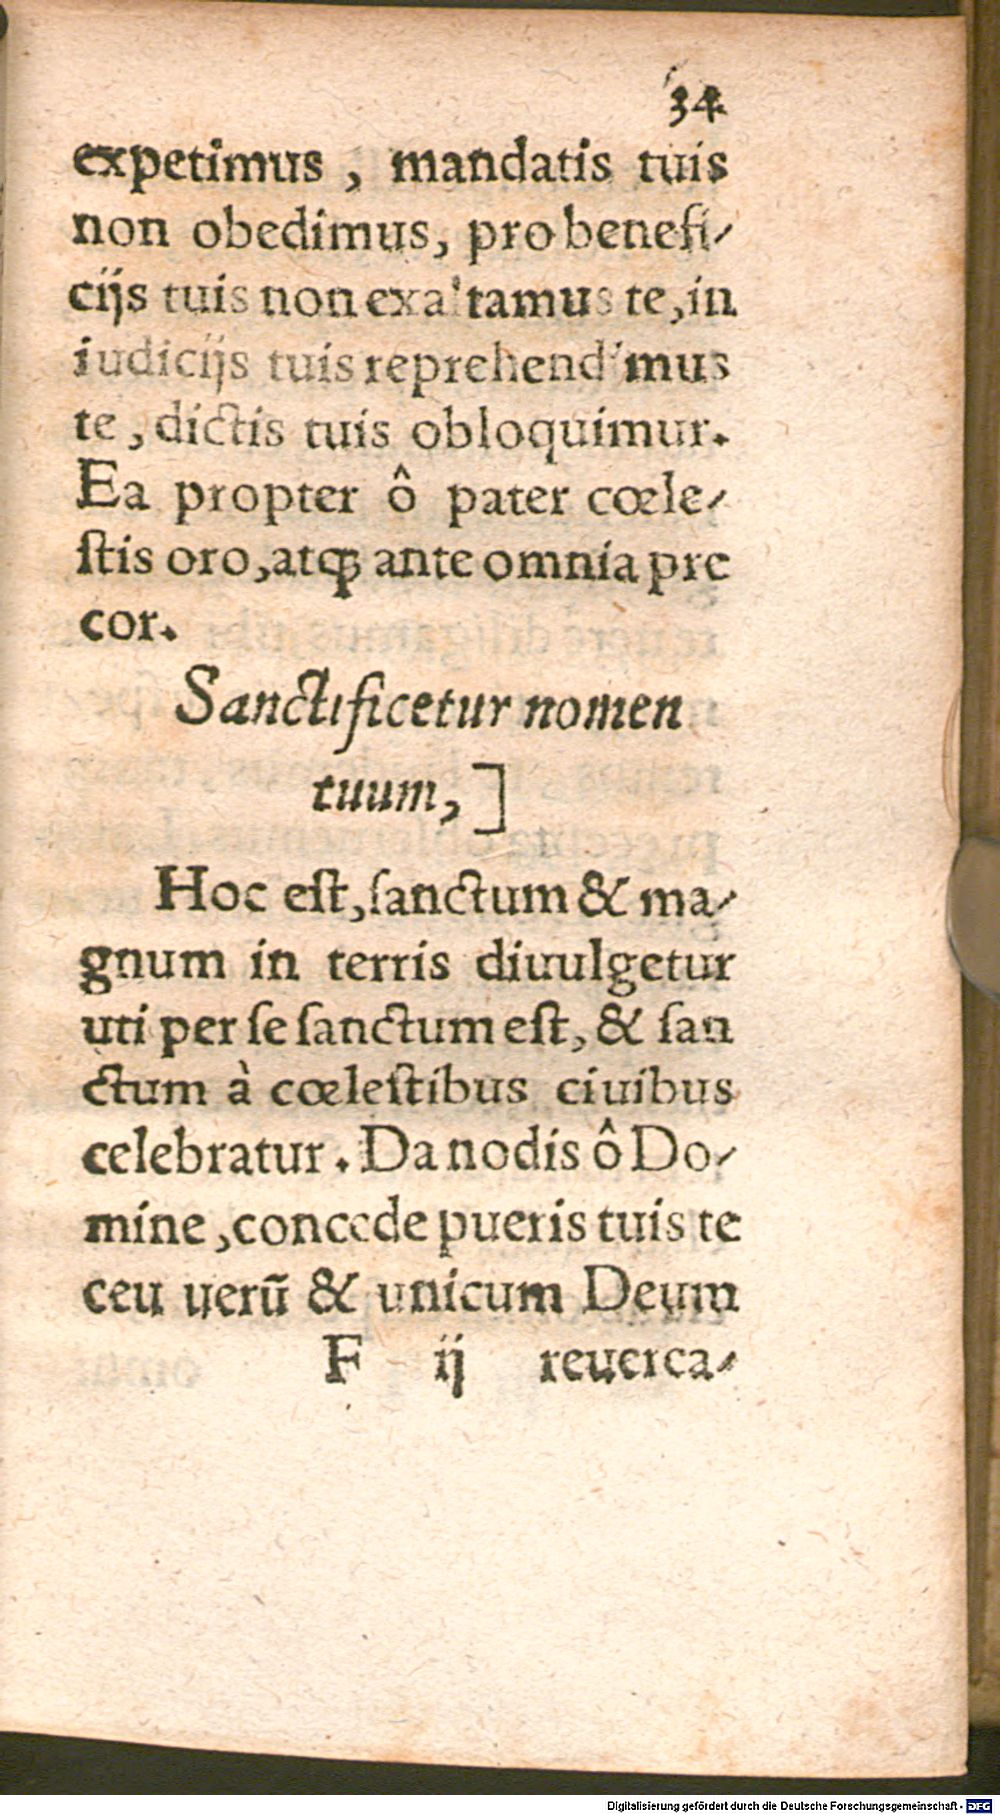 34
expetimus, mandatis tuis
non obedimus, pro benefi⸗
cijs tuis non exaltamus te, in
iudicijs tuis reprehendimus
te, dictis tuis obloquimur.
Ea propter ô pater cœle⸗
ſtis oro, atqꝫ ante omnia pre
cor.
Sanctificetur nomen
tuum,]
Hoc eſt, ſanctum & ma⸗
gnum in terris diuulgetur
uti per ſe ſanctum eſt, & ſan
ctum à cœleſtibus ciuibus
celebratur. Da nodis ô Do⸗
mine, concede pueris tuis te
ceu uerū & unicum Deum
F ij reuerea⸗
Digitalisierung gefördert durch die Deutsche Forschungsgemeinschaft - DFG